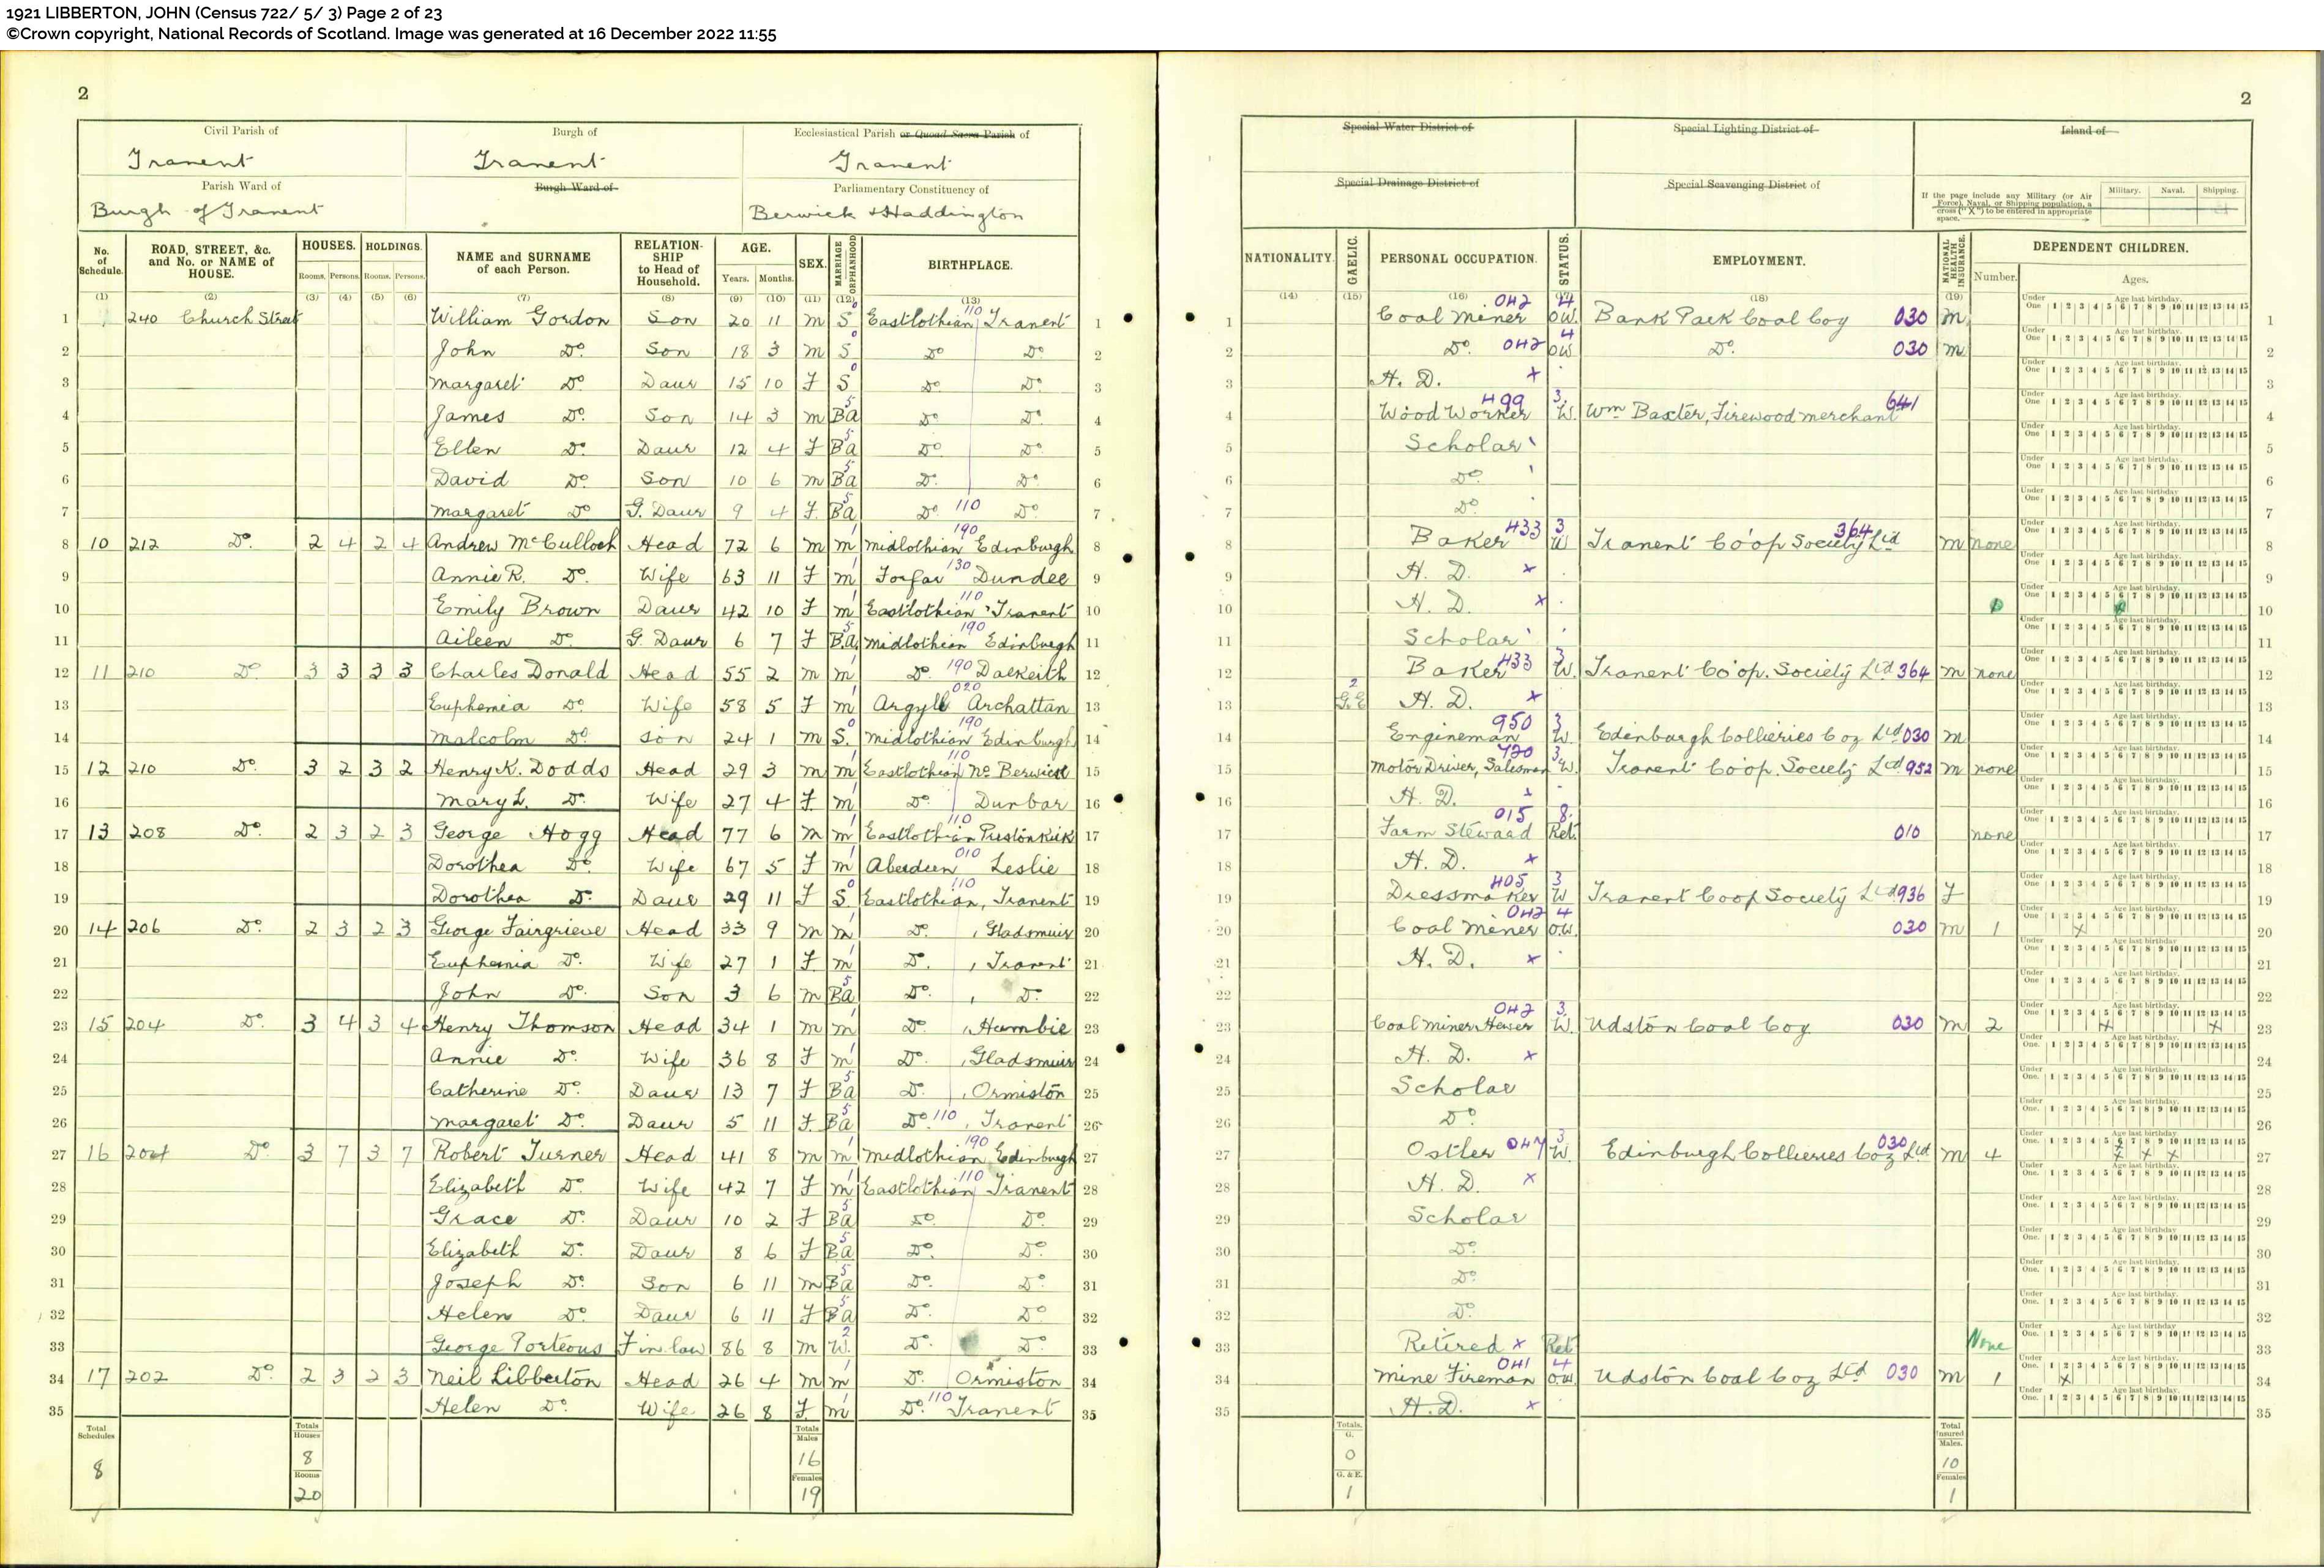 1921 LIBBERTON, JOHN (Census 722/ 5/ 3) Page 2 of 23
©Crown copyright, National Records of Scotland. Image was generated at 16 December 2022 11:55
2
2
Civil Parish of Burgh of Ecclesiastical Parish or Quoad Sacra Parish of
Tranent Tranent Tranent
Parish Ward of Burgh Ward of Parliamentary Constituency of
Burgh of Tranent Berwick & Haddington
Special Water District of Special Lighting District of Island of
Special Drainage District of Special Scavenging District of
If the page include any Military (or Air Force), Naval, or Shipping population, a cross ("X") to be entered in appropriate space. Military. Naval. Shipping.
No. of Schedule. ROAD, STREET, &c. and No. or NAME of HOUSE. HOUSES. Rooms. Persons. HOLDINGS. Rooms. Persons. NAME and SURNAME of each Person. RELATIONSHIP to Head of Household. AGE. Years. Months. SEX. MARRIAGE ORPHANHOOD BIRTHPLACE.
NATIONALITY. GAELIC. PERSONAL OCCUPATION. STATUS. EMPLOYMENT. NATIONAL HEALTH INSURANCE. DEPENDENT CHILDREN. Number. Ages.
(1) (2) (3) (4) (5) (6) (7) (8) (9) (10) (11) (12) (13) (14) (15) (16) (17) (18) (19)
Under One Age last birthday. 1 2 3 4 5 6 7 8 9 10 11 12 13 14 15
1 240 Church Street William Gordon Son 20 11 m S 0 Eastlothian 110 Tranent 1 Coal Miner 042 4 OW. Bank Park Coal Coy 030 m
2 John Do. Son 18 3 m S 0 Do Do 2 Do. 042 4 OW Do. 030 m
3 Margaret Do Daur 15 10 F S 0 Do Do 3 H. D. x
4 James Do. Son 14 3 m Ba 5 Do Do 4 Wood Worker 499 3 W. Wm Baxter, Firewood merchant 641
5 Ellen Do. Daur 12 4 F Ba 5 Do Do 5 Scholar
6 David Do. Son 10 6 m Ba 5 Do. Do 6 Do
7 Margaret Do G. Daur 9 4 F. Ba 5 Do. 110 Do 7 Do
8 10 212 Do. 2 4 2 4 Andrew McCulloch Head 72 6 m m 1 Midlothian 190 Edinburgh 8 Baker 433 3 W Tranent Co'op Society Ltd 364 m none
9 Annie R. Do. Wife 63 11 F m 1 Forfar 130 Dundee 9 H. D. x
10 Emily Brown Daur 42 10 F m 1 Eastlothian 110 Tranent 10 H. D. x
11 Aileen Do. G. Daur 6 7 F Ba 5 Midlothian 190 Edinburgh 11 Scholar
12 11 210 Do 3 3 3 3 Charles Donald Head 55 2 m m 1 Do. 190 Dalkeith 12 Baker 433 3 W. Tranent Co'op. Society Ltd 364 m none
13 Euphemia Do Wife 58 5 F m 1 Argyll 020 Archattan 13 2 G.E H. D. x
14 Malcolm Do Son 24 1 m S. 0 Midlothian 190 Edinburgh 14 Engineman 950 3 W. Edinburgh Collieries Coy Ltd 030 m
15 12 210 Do. 3 2 3 2 Henry K. Dodds Head 29 3 m m 1 Eastlothian 110 No Berwick 15 Motor Driver, Salesman 720 3 W. Tranent Co'op. Society Ltd 952 m none
16 Mary L. Do. Wife 27 4 F m 1 Do. Dunbar 16 H. D. x
17 13 208 Do. 2 3 2 3 George Hogg Head 77 6 m m 1 Eastlothian 110 Prestonkirk 17 Farm Steward 015 8. Ret. 010 none
18 Dorothea Do Wife 67 5 F m 1 Aberdeen 010 Leslie 18 H. D. x
19 Dorothea Do. Daur 29 11 F S 0 Eastlothian, 110 Tranent 19 Dressmaker 405 3 W Tranent Coop Society Ltd 936 F
20 14 206 Do. 2 3 2 3 George Fairgrieve Head 33 9 m m 1 Do. , Gladsmuir 20 Coal Miner 042 4 O.W. 030 m 1 x
21 Euphemia Do. Wife 27 1 F. m 1 Do. , Tranent 21 H. D. x
22 John Do. Son 3 6 m Ba 5 Do. , Do. 22
23 15 204 Do. 3 4 3 4 Henry Thomson Head 34 1 m m 1 Do. , Humbie 23 Coal Miner Hewer 042 3. W. Udston Coal Coy 030 m 2 x x
24 Annie Do. Wife 36 8 F m 1 Do. , Gladsmuir 24 H. D. x
25 Catherine Do. Daur 13 7 F Ba 5 Do. , Ormiston 25 Scholar
26 Margaret Do. Daur 5 11 F. Ba 5 Do. 110 , Tranent 26 Do
27 16 204 Do 3 7 3 7 Robert Turner Head 41 8 m m 1 Midlothian 190 Edinburgh 27 Ostler 047 3 W. Edinburgh Collieries Coy Ltd 030 m 4 x x x x
28 Elizabeth Do. Wife 42 7 F m 1 Eastlothian 110 Tranent 28 H. D. x
29 Grace Do. Daur 10 2 F Ba 5 Do. Do. 29 Scholar
30 Elizabeth Do. Daur 8 6 F Ba 5 Do. Do. 30 Do.
31 Joseph Do. Son 6 11 m Ba 5 Do. Do 31 Do.
32 Helen Do. Daur 6 11 F Ba 5 Do. Do 32 Do.
33 George Porteous F in law 86 8 m W. 2 Do. Do. 33 Retired x Ret None
34 17 202 Do. 2 3 2 3 Neil Libberton Head 26 4 m m 1 Do. Ormiston 34 Mine Fireman 041 4 O.W. Udston Coal Coy Ltd 030 m 1 x
35 Helen Do. Wife 26 8 F. m 1 Do. 110 Tranent 35 H.D. x
Total Schedules 8 Totals Houses 8 Rooms 20 Totals Males 16 Females 19 Totals. G. 0 G. & E. 1 Total Insured Males. 10 Females 1